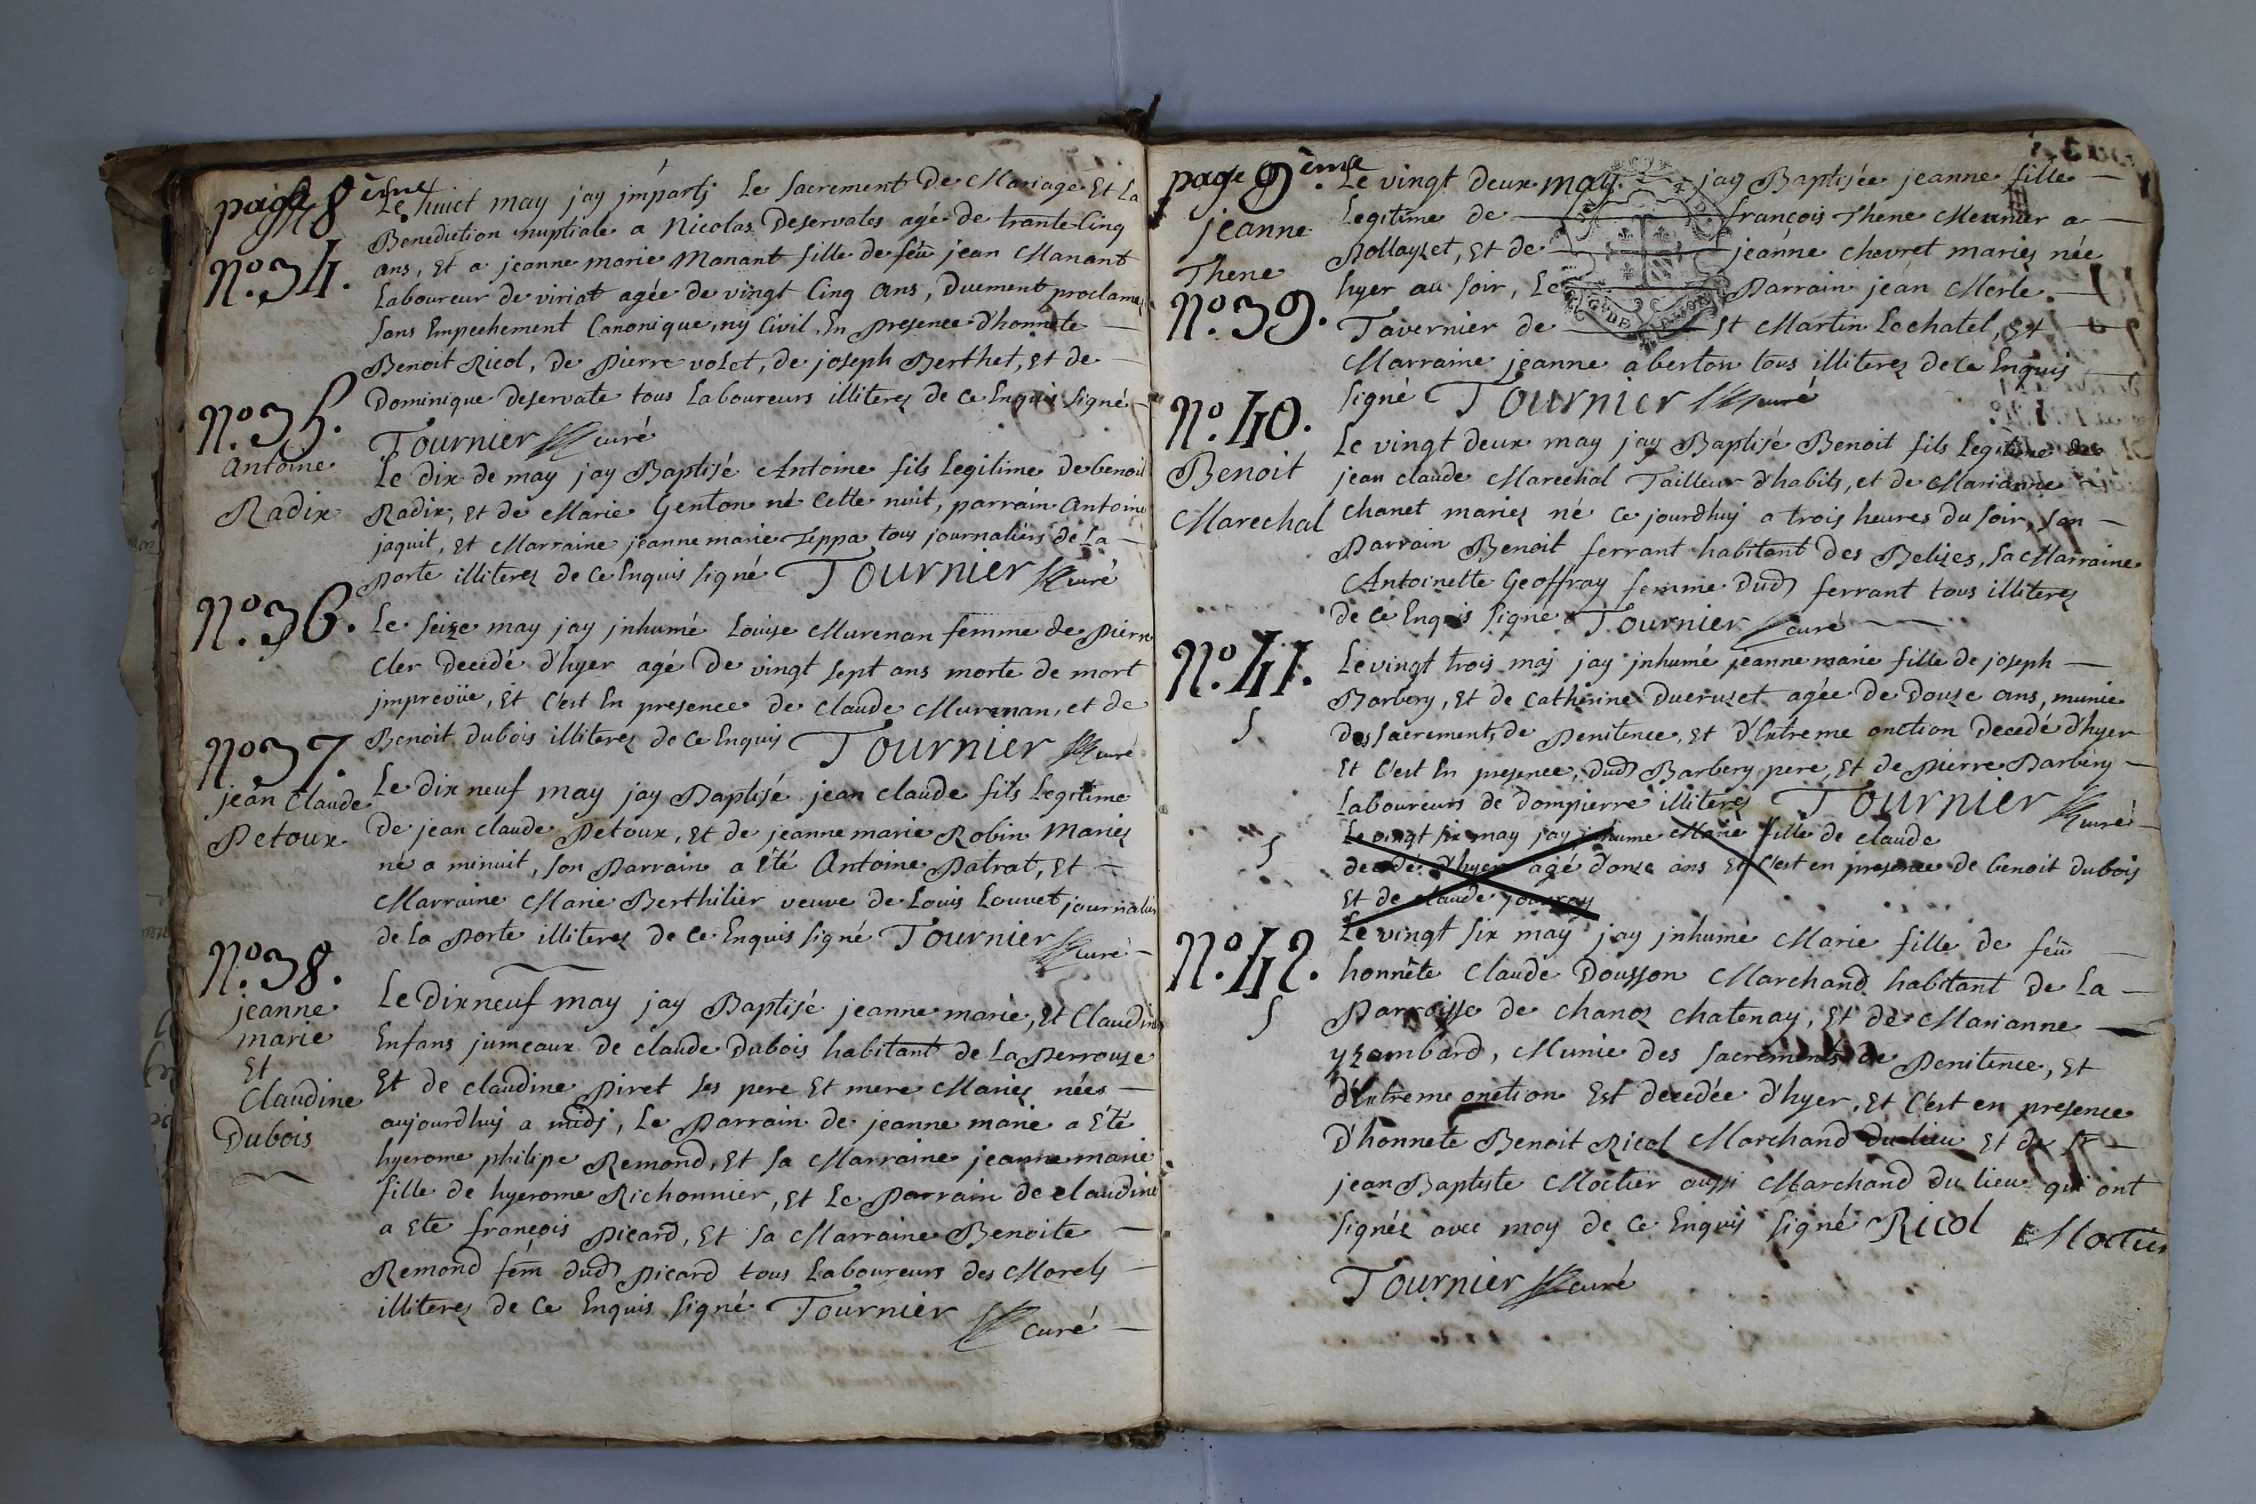 page 8ème
Le huict may jay imparti Le Sacrement De Mariage Et La
Benediction nuptiale a Nicolas Deservates agé de trante Cinq
N.o 34.
ans, Et a jeanne marie Manant fille de feu jean Manant
Laboureur de viriat agée de vingt Cinq ans, Duement proclamez
sans Empechement Canonique, ny Civil En presence d'honnete
Benoit Ricol, De Pierre volet, de joseph Berthet, Et de
Dominique Deservate tous Laboureurs illiterez de ce Enquis signé
Tournier curé
N.o 35.
Antoine
Radix
Le dix de may jay Baptisé Antoine fils Legitime de benoit
Radix, Et de Marie Genton né Cette nuit, parrain Antoine
jaquit, Et Marraine jeanne marie Teppa tous journaliers de La
Porte illiterez de Ce Enquis signé Tournier curé
N.o 36.
Le seize may jay jnhumé Louise Murenan femme de Pierre
Cler Decedé d'hyer agé De vingt sept ans morte de mort
jmprevüe, Et C'est En presence de Claude Murenan, et de
Benoit Dubois illiterez de Ce Enquis Tournier curé
N.o 37.
jean Claude
Petoux
Le Dix neuf may jay Baptisé jean claude fils Legitime
De jean claude Petoux, Et de jeanne marie Robin Mariez
né a minuit, son Parrain a Eté Antoine Patrat, Et
Marraine Marie Berthilier veuve de Louis Louvet journalier
de La Porte illiterez de Ce Enquis signé Tournier curé
N.o 38.
jeanne
marie
Et
Claudine
Dubois
Le Dixneuf may jay Baptisé jeanne marie, Et Claudine
Enfans jumeaux de claude Dubois habitant de La Perrouze
Et de claudine Piret ses pere Et mere Mariez nées
aujourdhuy a midi, Le Parrain de jeanne marie a Eté
hyerome philipe Remond, Et sa Marraine jeanne marie
fille de hyerome Richonnier, Et Le Parrain de Claudine
a Ete françois Picard, Et sa Marraine Benoite
Remond fem dud Picard tous Laboureurs des Morels
illiterez de Ce Enquis signé Tournier
curé
page 9ème
jeanne
Thene
N.o 39.
Le vingt deux may jay Baptisée jeanne fille
Legitime de françois Thene Meunier a
Pollayzet, Et de jeanne chevret mariez née
hyer au soir, Le Parrain jean Merle
Tavernier de St Martin Lechatel, Et
Marraine jeanne aberton tous illiterez de Ce Enquis
signé Tournier curé
N.o 40.
Benoit
Marechal
Le vingt deux may jay Baptisé Benoit fils Legitime de
jean claude Marechal Tailleur d'habits, et de Marianne
Chanet mariez né Ce jourdhuy a trois heures du soir, son
Parrain Benoit ferrant habitant des Belizes, sa Marraine
Antoinette Geoffray femme Dud ferrant tous illiterez
de Ce Enquis signé Tournier curé
N.o 41.
Le vingt trois maj jay jnhumé jeanne marie fille de joseph
Barbery, Et de Catherine Dueruzet agée de Douze ans, munie
Des sacrement, de Penitence, Et d'Extreme onction Decedé d'hyer
Et C'est En presence, dud Barbery pere, Et de Pierre Barbery
Laboureurs de Dompierre illiterez Tournier curé
Le vingt six may jay jnhume Marie fille de claude
decedé d'hyer agé donze ans Et C'est en presence de benoit Dubois
Et de claude
N.o 42.
Le vingt six may jay jnhumé Marie fille de feu
honnête Claude Dousson Marchand habitant De La
Parroisse de chanoz chatenay, Et de Marianne
yzombard, Munie des sacrements de Penitence, Et
d'Extreme onction Est decedée d'hyer, Et C'est en presence
D'honnete Benoit Ricol Marchand du lieu Et de Sr
jean Baptiste Moctier aussi Marchand Du lieu qui ont
signéz avec moy de Ce Enquis signé Ricol Moctier
Tournier curé